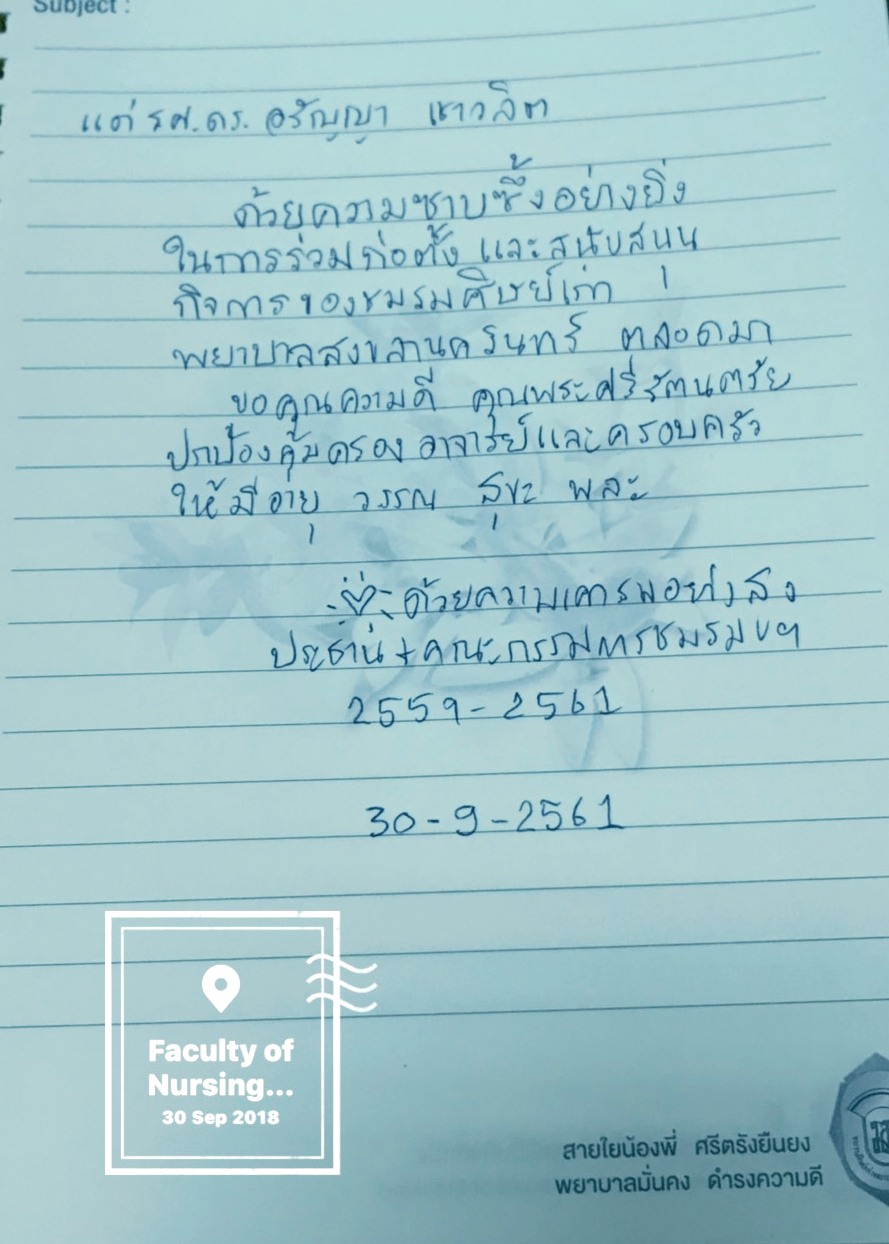 Subject :
แด่ รศ.ดร. อรัญญา เชาวลิต
ด้วยความซาบซึ้งอย่างยิ่ง
ในการร่วมก่อตั้ง และสนับสนุน
กิจการของชมรมศิษย์เก่า
พยาบาลสงขลานครินทร์ ตลอดมา
ขอคุณความดี คุณพระศรีรัตนตรัย
ปกป้องคุ้มครอง อาจารย์และครอบครัว
ให้มีอายุ วรรณ สุขะ พละ
ด้วยความเคารพอย่างสูง
ประธาน + คณะกรรมการชมรมฯ
2559 - 2561
30 - 9 - 2561
Faculty of
Nursing...
30 Sep 2018
สายใยน้องพี่ ศรีตรังยืนยง
พยาบาลมั่นคง ดำรงความดี